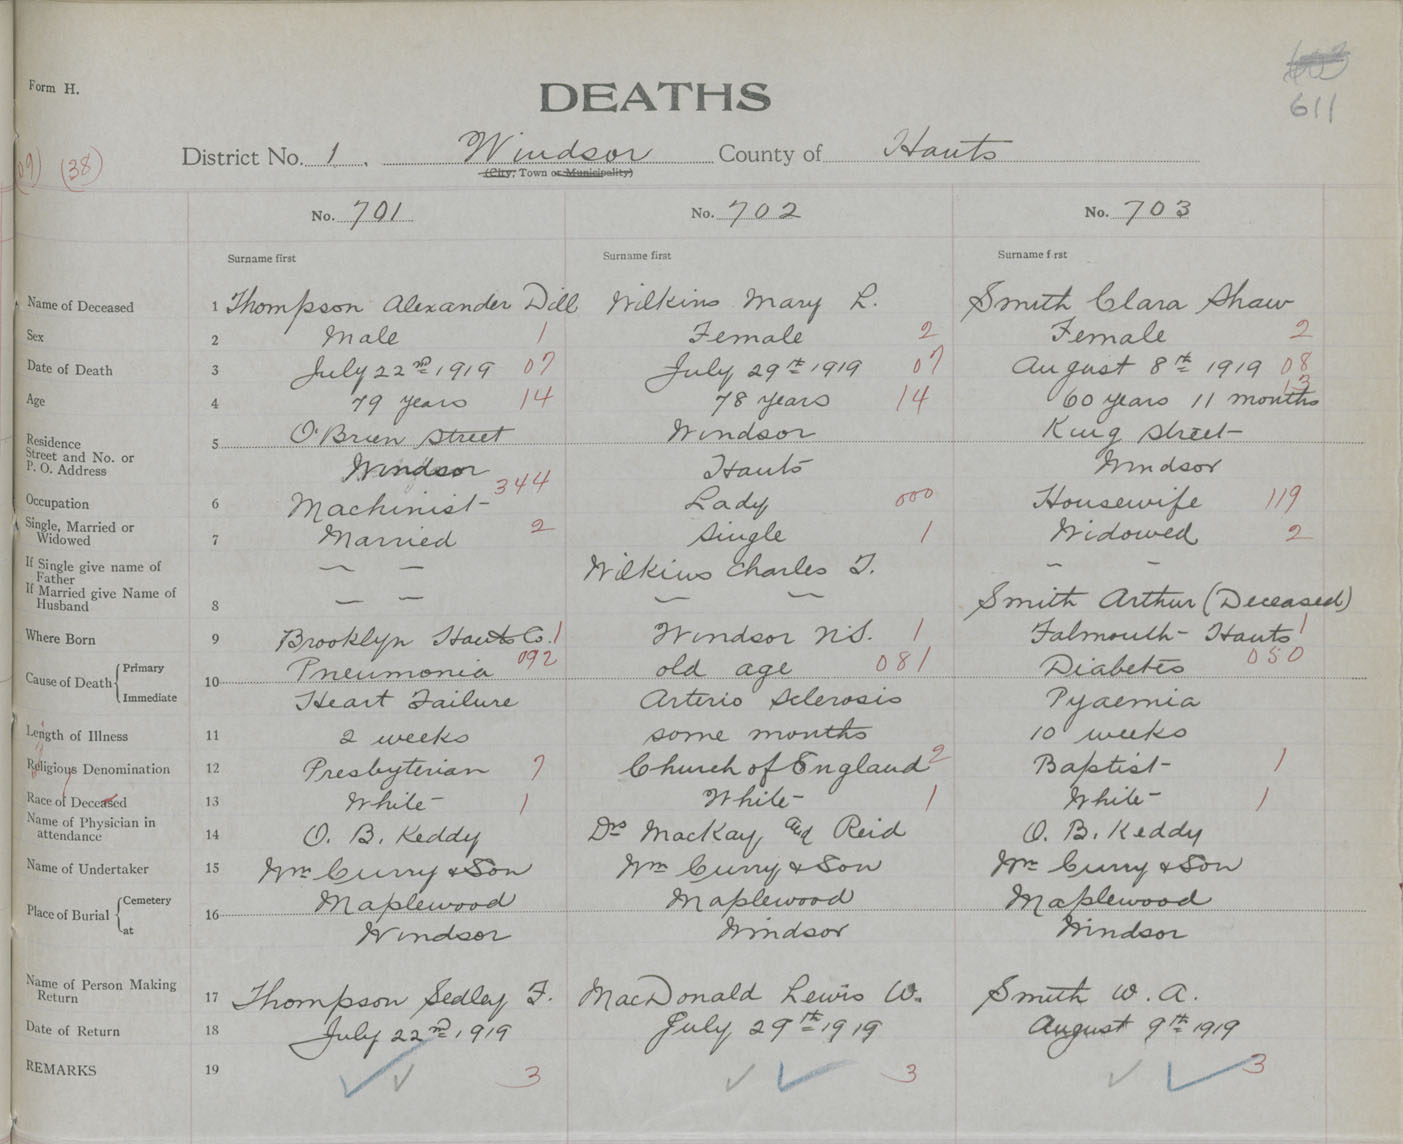 603
611
Form H.
DEATHS
District No. 1. Windsor County of Hants
(City, Town or Municipality)
09) (38)
No. 701 No. 702 No. 703
Surname first Surname first Surname first
Name of Deceased 1 Thompson Alexander Dill Wilkins Mary L. Smith Clara Shaw
Sex 2 Male 1 Female 2 Female 2
Date of Death 3 July 22nd 1919 07 July 29th 1919 07 August 8th 1919 08
Age 4 79 years 14 78 years 14 60 years 11 months 13
Residence 5 O'Brien Street Windsor King Street
Street and No. or
P. O. Address Windsor Hants Windsor
Occupation 6 Machinist 344 Lady 000 Housewife 119
Single, Married or
Widowed 7 Married 2 Single 1 Widowed 2
If Single give name of
Father — — Wilkins Charles T. - -
If Married give Name of
Husband 8 — — — — Smith Arthur (Deceased)
Where Born 9 Brooklyn Hants Co. 1 Windsor N.S. 1 Falmouth - Hants 1
Cause of Death Primary 10 Pneumonia 092 old age 081 Diabetes 050
Immediate Heart Failure Arterio Sclerosis Pyaemia
Length of Illness 11 2 weeks some months 10 weeks
Religious Denomination 12 Presbyterian 7 Church of England 2 Baptist 1
Race of Deceased 13 White 1 White 1 White 1
Name of Physician in
attendance 14 O. B. Keddy Drs MacKay and Reid O. B. Keddy
Name of Undertaker 15 Wm Curry & Son Wm Curry & Son Wm Curry & Son
Place of Burial Cemetery 16 Maplewood Maplewood Maplewood
at Windsor Windsor Windsor
Name of Person Making
Return 17 Thompson Sedley F. MacDonald Lewis W. Smith W. A.
Date of Return 18 July 22nd 1919 July 29th 1919 August 9th 1919
REMARKS 19 3 3 3